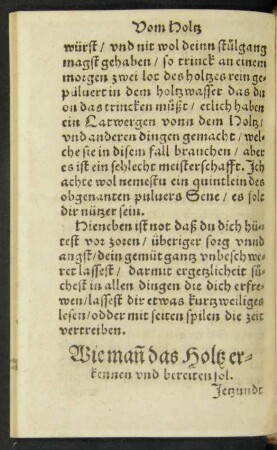 Vom Holtz
würst / vnd nit wol deinn stůlgang
magst gehaben / so trinck an einem
morgen zwei lot des holtzes rein ge-
puluert in dem holtzwasser das du
on das trincken můßt / etlich haben
ein Latwergen vonn dem Holtz /
vnd anderen dingen gemacht / wel-
che sie in disem fall brauchen / aber
es ist ein schlecht meisterschafft. Ich
achte wol nemestu ein quintlein des
obgenanten puluers Sene / es solt
dir nützer sein.
Hieneben ist not daß du dich hü-
test vor zoren / überiger sorg vnnd
angst / dein gemüt gantz vnbeschwe-
ret lassest / darmit ergetzlicheit sů-
chest in allen dingen die dich erfre-
wen / lassest dir etwas kurtzweiliges
lesen / odder mit seiten spilen die zeit
vertreiben.
Wie mañ das Holtz er-
kennen vnd bereiten sol.
Jetzundt